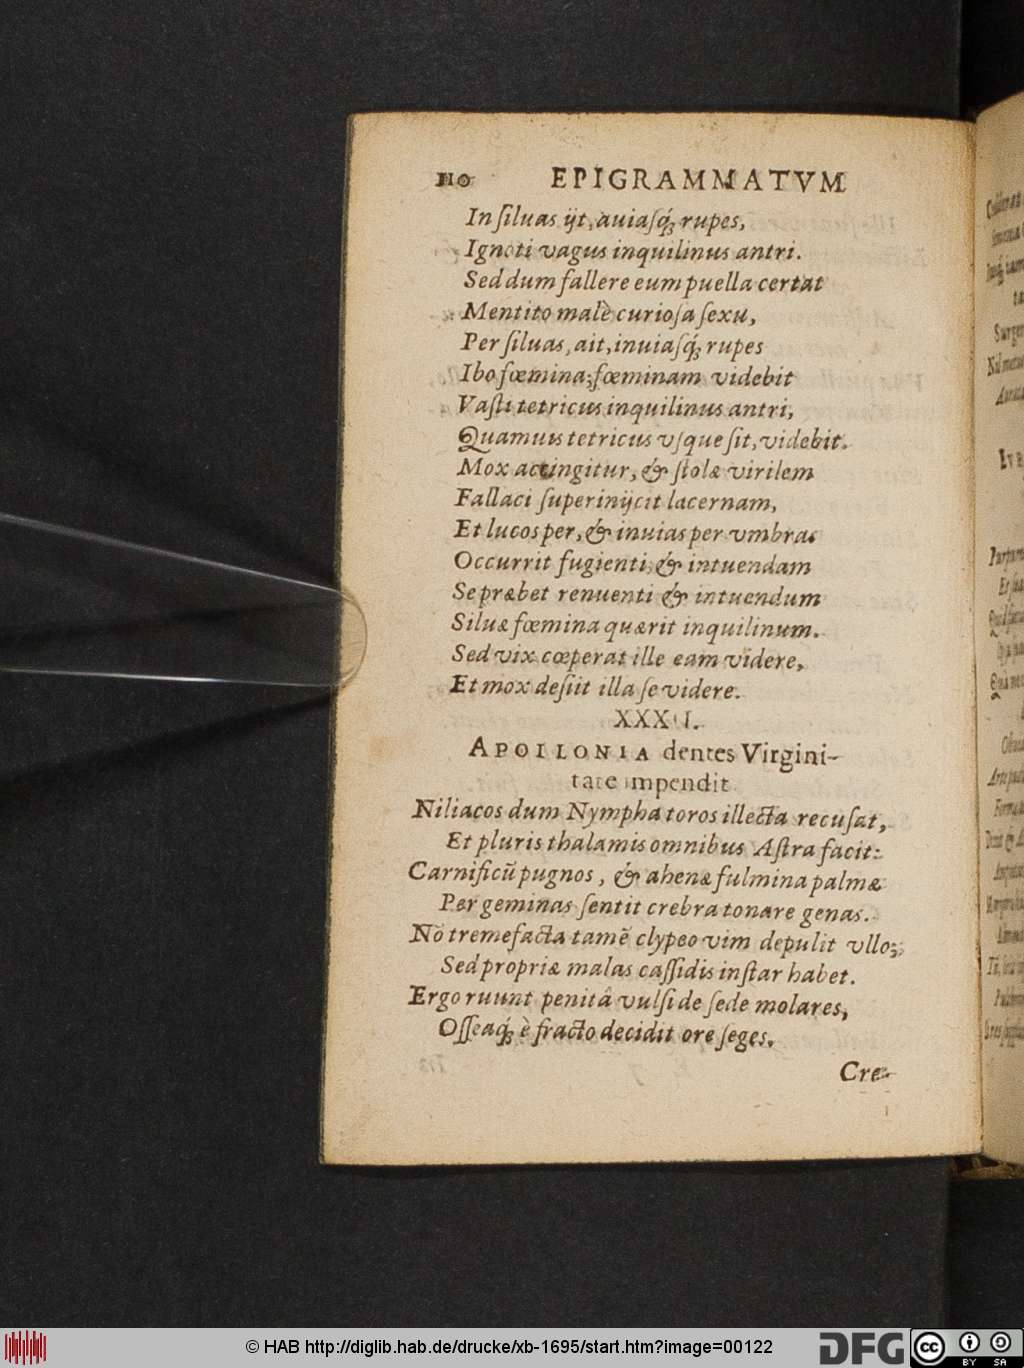 110 EPIGRAMMATVM
In ſiluas ijt, auiaſq́; rupes,
Ignoti vagus inquilinus antri.
Sed dum fallere eum puella certat
Mentito malè curioſa ſexu,
Per ſiluas, ait, inuiaſq́; rupes
Ibo fœmina; fœminam videbit
Vaſti tetricus inquilinus antri,
Quamuis tetricus vſque ſit, videbit.
Mox accingitur, & ſtolæ virilem
Fallaci ſuperinijcit lacernam,
Et lucos per, & inuias per vmbras
Occurrit fugienti, & intuendam
Se præbet renuenti & intuendum
Siluæ fœmina quærit inquilinum.
Sed vix cœperat ille eam videre,
Et mox deſiit illa ſe videre.
APOLLONIA dentes Virgini-
tate impendit
Niliacos dum Nympha toros illecta recuſat,
Et pluris thalamis omnibus Aſtra facit:
Carnificũ pugnos, & ahenæ fulmina palmæ
Per geminas ſentit crebra tonare genas.
Nõ tremefacta tamẽ clypeo vim depulit vllo;
Sed propriæ malas caſſidis inſtar habet.
Ergo ruunt penitâ vulſi de ſede molares,
Oſſeaq́; è fracto decidit ore ſeges.
Cre-
© HAB http://diglib.hab.de/drucke/xb-1695/start.htm?image=00122
DFG
cc BY SA